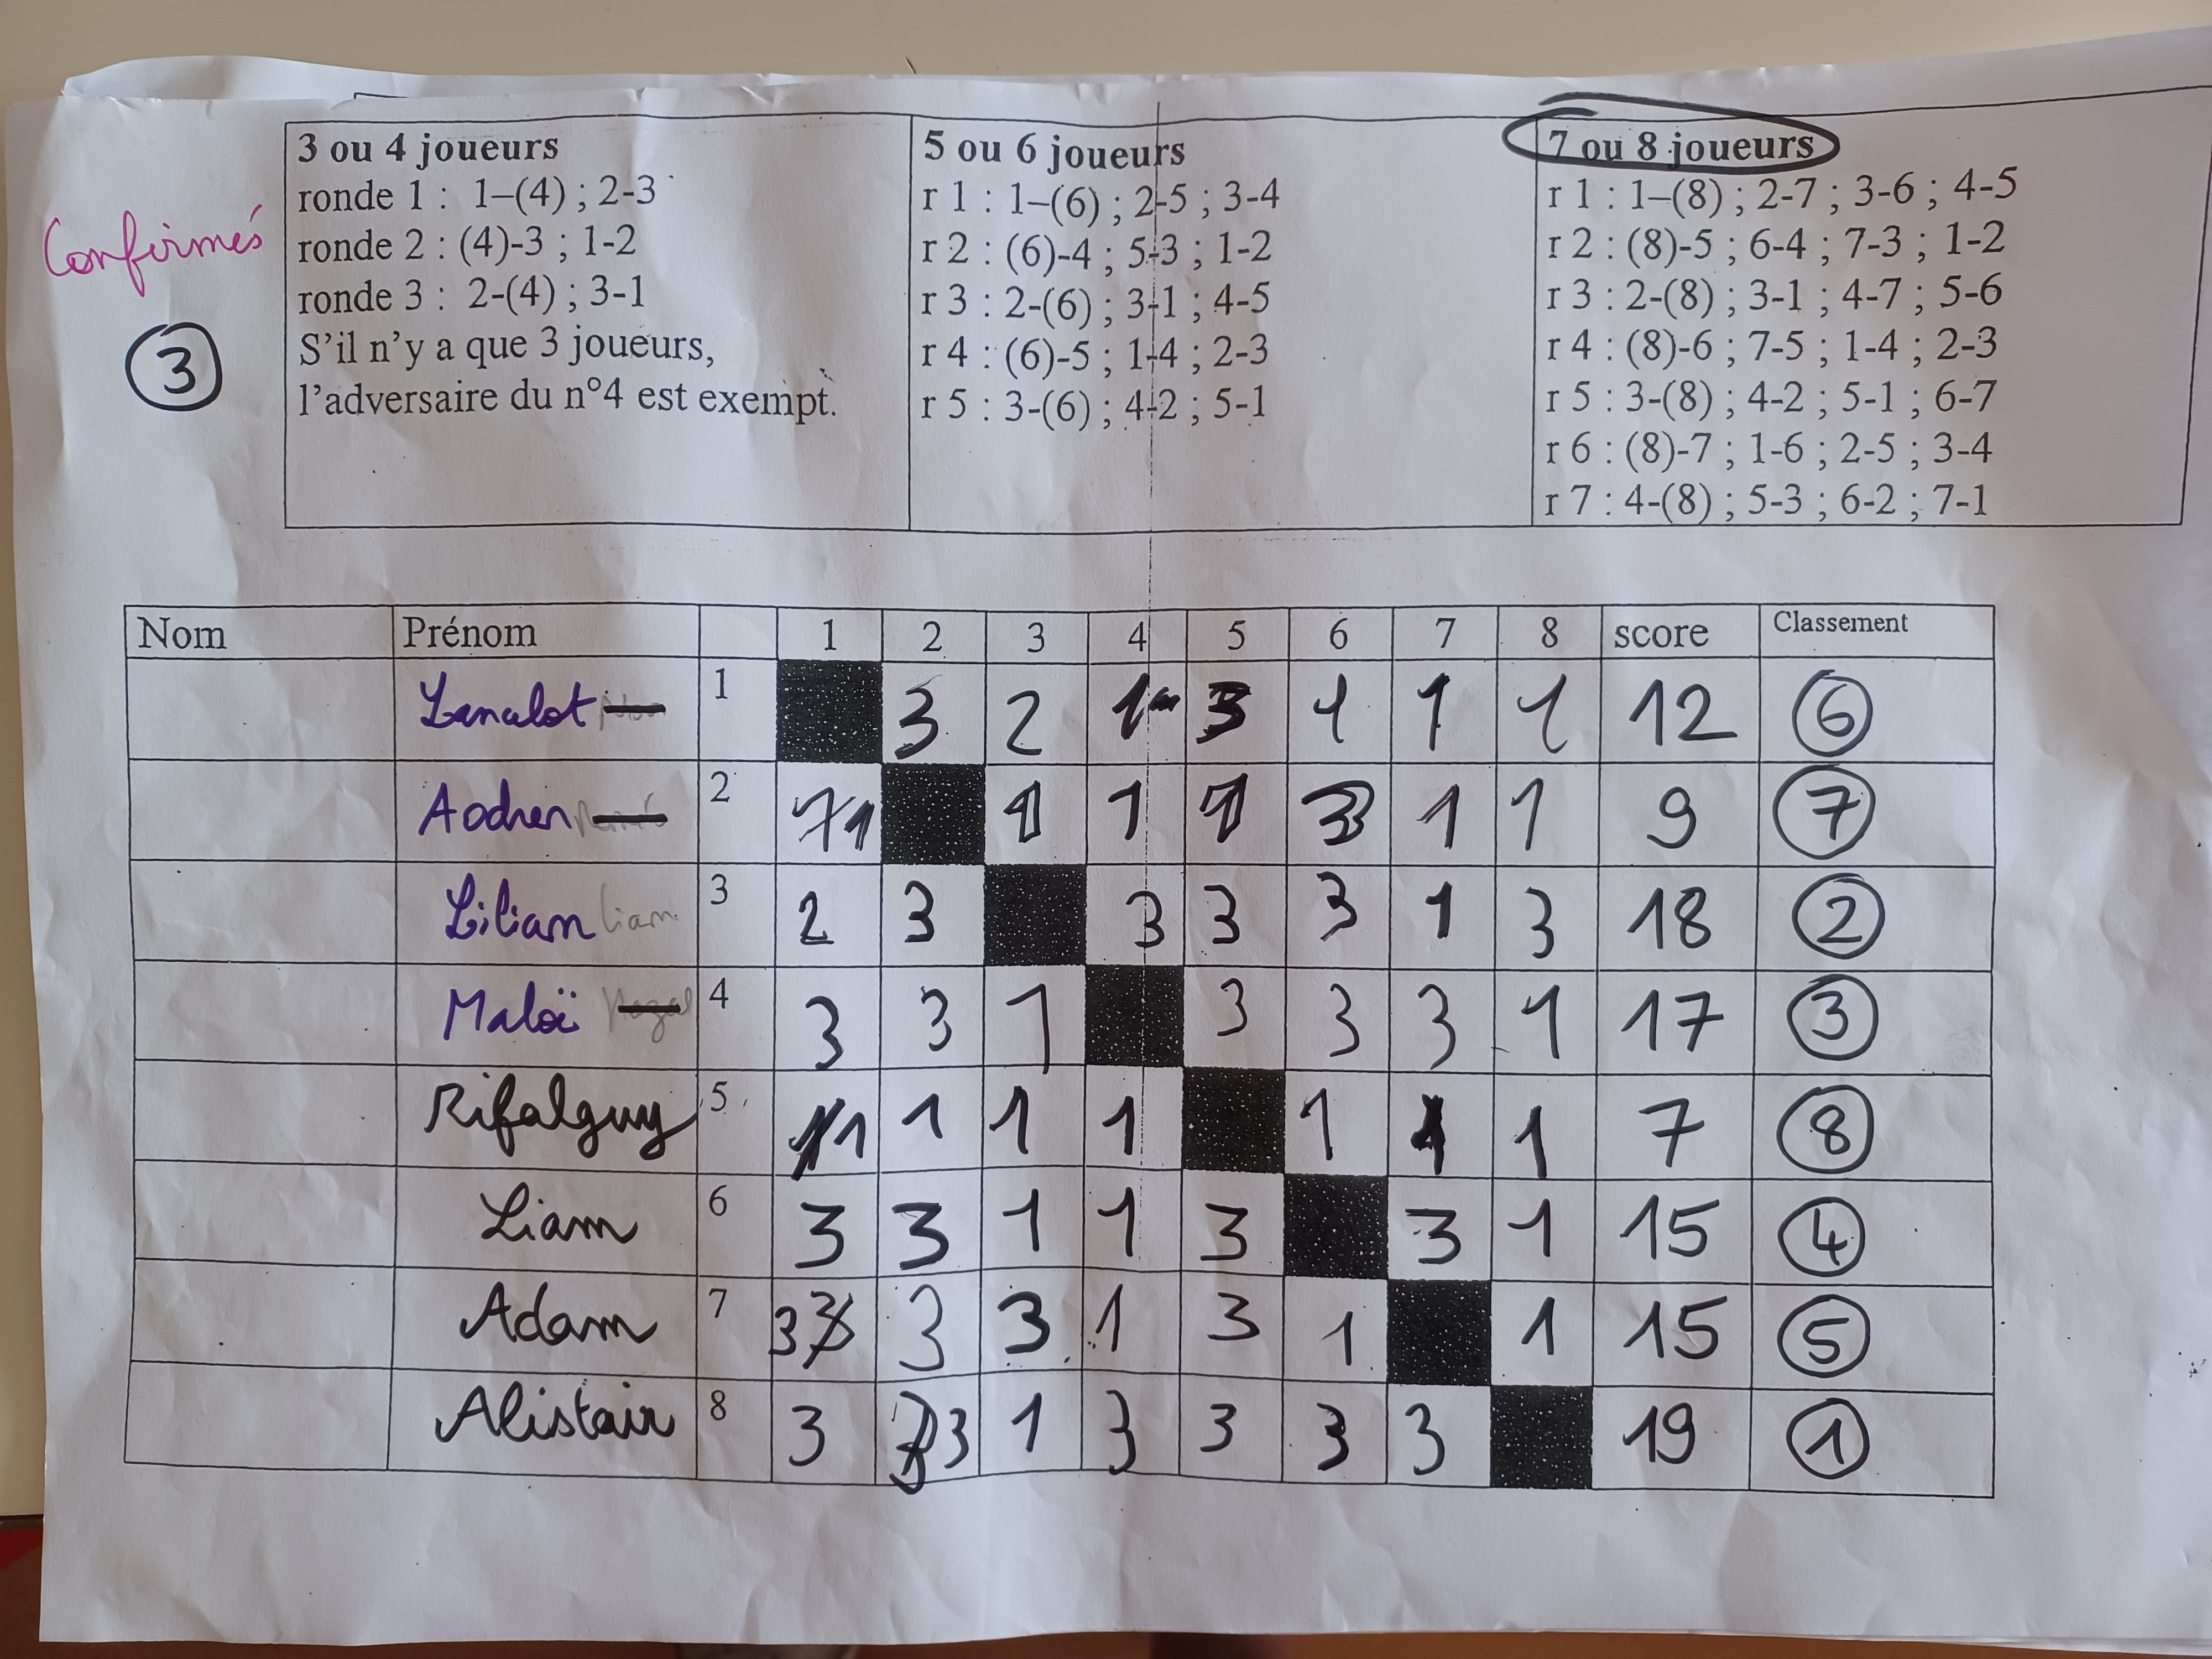 3 ou 4 joueurs
ronde 1 : 1–(4) ; 2-3
ronde 2 : (4)-3 ; 1-2
ronde 3 : 2-(4) ; 3-1
S'il n'y a que 3 joueurs,
l'adversaire du n°4 est exempt.
5 ou 6 joueurs
r 1 : 1–(6) ; 2-5 ; 3-4
r 2 : (6)-4 ; 5-3 ; 1-2
r 3 : 2-(6) ; 3-1 ; 4-5
r 4 : (6)-5 ; 1-4 ; 2-3
r 5 : 3-(6) ; 4-2 ; 5-1
7 ou 8 joueurs
r 1 : 1–(8) ; 2-7 ; 3-6 ; 4-5
r 2 : (8)-5 ; 6-4 ; 7-3 ; 1-2
r 3 : 2-(8) ; 3-1 ; 4-7 ; 5-6
r 4 : (8)-6 ; 7-5 ; 1-4 ; 2-3
r 5 : 3-(8) ; 4-2 ; 5-1 ; 6-7
r 6 : (8)-7 ; 1-6 ; 2-5 ; 3-4
r 7 : 4-(8) ; 5-3 ; 6-2 ; 7-1
Confirmés
3
Nom Prénom 1 2 3 4 5 6 7 8 score Classement
Lancelot 1 3 2 1 3 1 1 1 12 6
Aodren 2 1 1 1 1 3 1 1 9 7
Liliam liam 3 2 3 3 3 3 1 3 18 2
Maloï 4 3 3 1 3 3 3 1 17 3
Rifalguy 5 1 1 1 1 1 1 1 7 8
Liam 6 3 3 1 1 3 3 1 15 4
Adam 7 3 3 3 1 3 1 1 15 5
Alistair 8 3 3 1 3 3 3 3 19 1